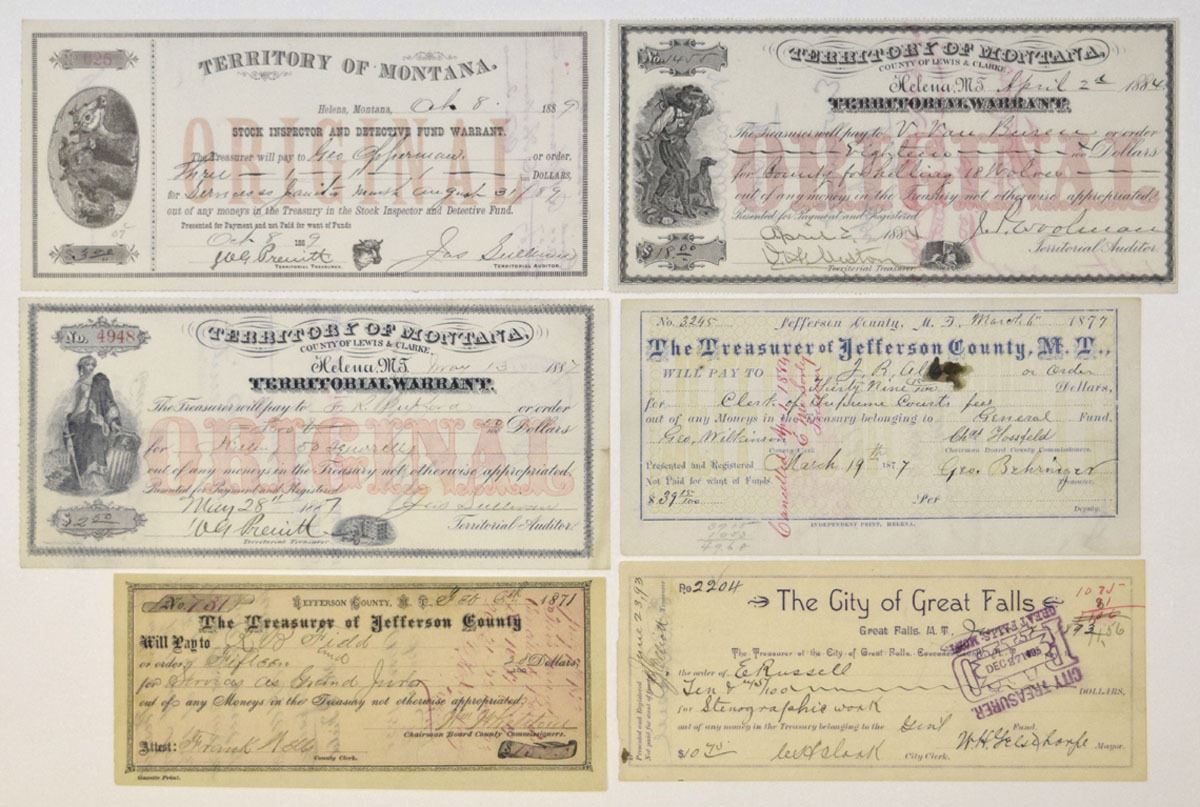 625
TERRITORY OF MONTANA.
Helena, Montana, Oct. 8 1889
STOCK INSPECTOR AND DETECTIVE FUND WARRANT.
ORIGINAL
The Treasurer will pay to Geo Opperman or order,
Three DOLLARS,
for Services month August 31/89
out of any moneys in the Treasury in the Stock Inspector and Detective Fund.
Presented for Payment and not Paid for want of Funds
Oct 8 1889
$3.00
W G Preuitt
TERRITORIAL TREASURER.
Jas Sullivan
TERRITORIAL AUDITOR.
No. 1451
TERRITORY OF MONTANA,
COUNTY OF LEWIS & CLARKE,
Helena, M.T. April 2d 1884
TERRITORIAL WARRANT.
ORIGINAL
The Treasurer will pay to V. Van Buren or order
Eighteen Dollars
for Bounty for killing 18 Wolves
out of any moneys in the Treasury not otherwise appropriated.
Presented for Payment and Registered
April 2 1884
J. P. Woolman
Territorial Auditor.
$18.00
D H Weston
Territorial Treasurer
No. 4948
TERRITORY OF MONTANA,
COUNTY OF LEWIS & CLARKE,
Helena, M.T. May 13 1887
TERRITORIAL WARRANT.
ORIGINAL
The Treasurer will pay to or order
Dollars
for Killing 50 squirrels
out of any moneys in the Treasury not otherwise appropriated.
Presented for Payment and Registered
May 28th 1887
Jas Sullivan
$2.50
W G Preuitt
Territorial Auditor.
Territorial Treasurer
No. 3245 Jefferson County, M. T., March 6th 1877
The Treasurer of Jefferson County, M. T.,
WILL PAY TO J. R. or Order
Thirty Nine Dollars,
for Clerk of Supreme Courts fees
out of any Moneys in the Treasury belonging to General Fund.
Geo. Wilkinson Chas Hossfeld
County Clerk Chairman Board County Commissioners.
Presented and Registered March 19th 1877 Geo. Behringer
Not Paid for want of Funds. Treasurer
$39 15/100 Per
Deputy.
INDEPENDENT PRINT, HELENA.
No. JEFFERSON COUNTY, M. T., Feb 1871
The Treasurer of Jefferson County
Will Pay to
or order Fifteen and Dollars,
for Services as Grand Juror
out of any Moneys in the Treasury not otherwise appropriated.
Chairman Board County Commissioners.
Attest: Frank
County Clerk.
Gazette Print.
No 2204
The City of Great Falls
10 75
81
Great Falls, M. T., 93
The Treasurer of the City of Great Falls,
the order of E Russell
Ten & 75/100 DOLLARS,
for Stenographic work
out of any money in the Treasury belonging to the Genl Fund.
$10 75 City Clerk. Mayor.
Presented and Registered June 23, 93
Not paid for want of
GREAT FALLS, MONT.
DEC 27 1893
CITY TREASURER.